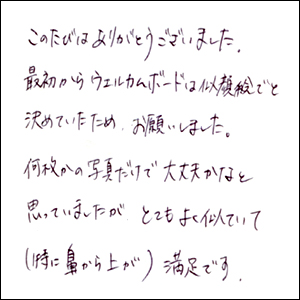 このたびはありがとうございました。
最初からウェルカムボードは似顔絵でと
決めていたため、お願いしました。
何枚かの写真だけで大丈夫かなと
思っていましたが、とてもよく似ていて
(特に鼻から上が) 満足です。